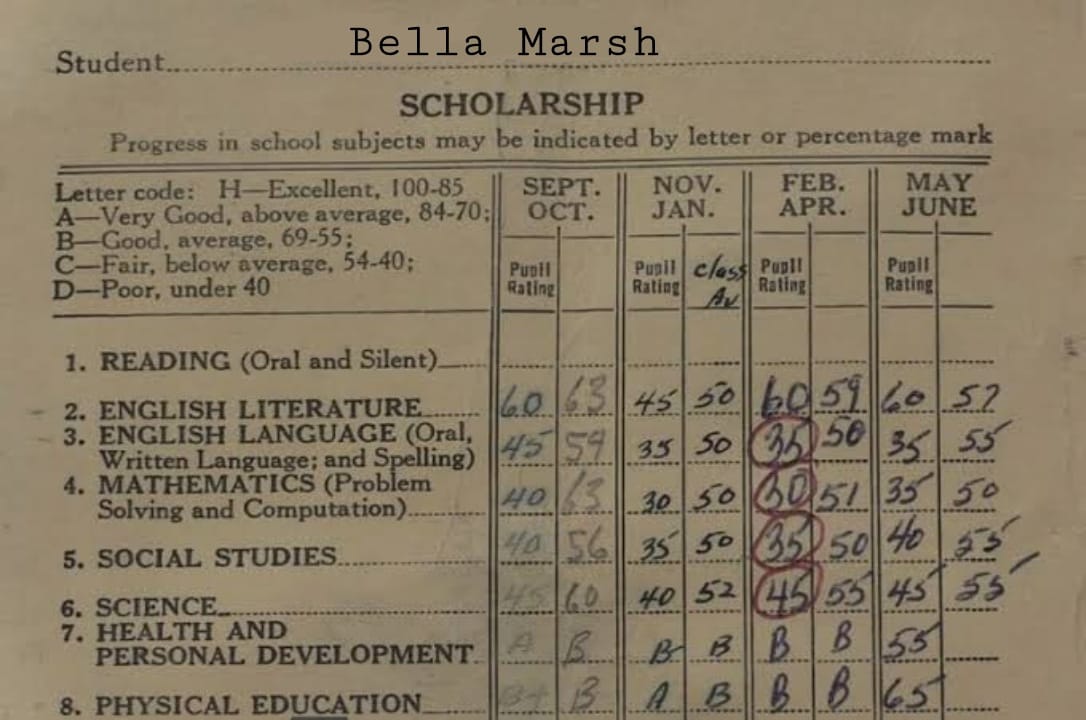 Bella Marsh
Student
SCHOLARSHIP
Progress in school subjects may be indicated by letter or percentage mark
Letter code: H—Excellent, 100-85
A—Very Good, above average, 84-70;
B—Good, average, 69-55;
C—Fair, below average, 54-40;
D—Poor, under 40
SEPT. OCT. NOV. JAN. FEB. APR. MAY JUNE
Pupil Rating Pupil Rating Class Av Pupil Rating Pupil Rating
1. READING (Oral and Silent)
2. ENGLISH LITERATURE 60 63 45 50 60 59 60 57
3. ENGLISH LANGUAGE (Oral,
Written Language; and Spelling) 45 59 35 50 35 50 35 55
4. MATHEMATICS (Problem
Solving and Computation) 40 63 30 50 30 51 35 50
5. SOCIAL STUDIES 40 56 35 50 35 50 40 55
6. SCIENCE 45 60 40 52 45 55 45 55
7. HEALTH AND
PERSONAL DEVELOPMENT A B B B B B 55
8. PHYSICAL EDUCATION B+ B A B B B 65